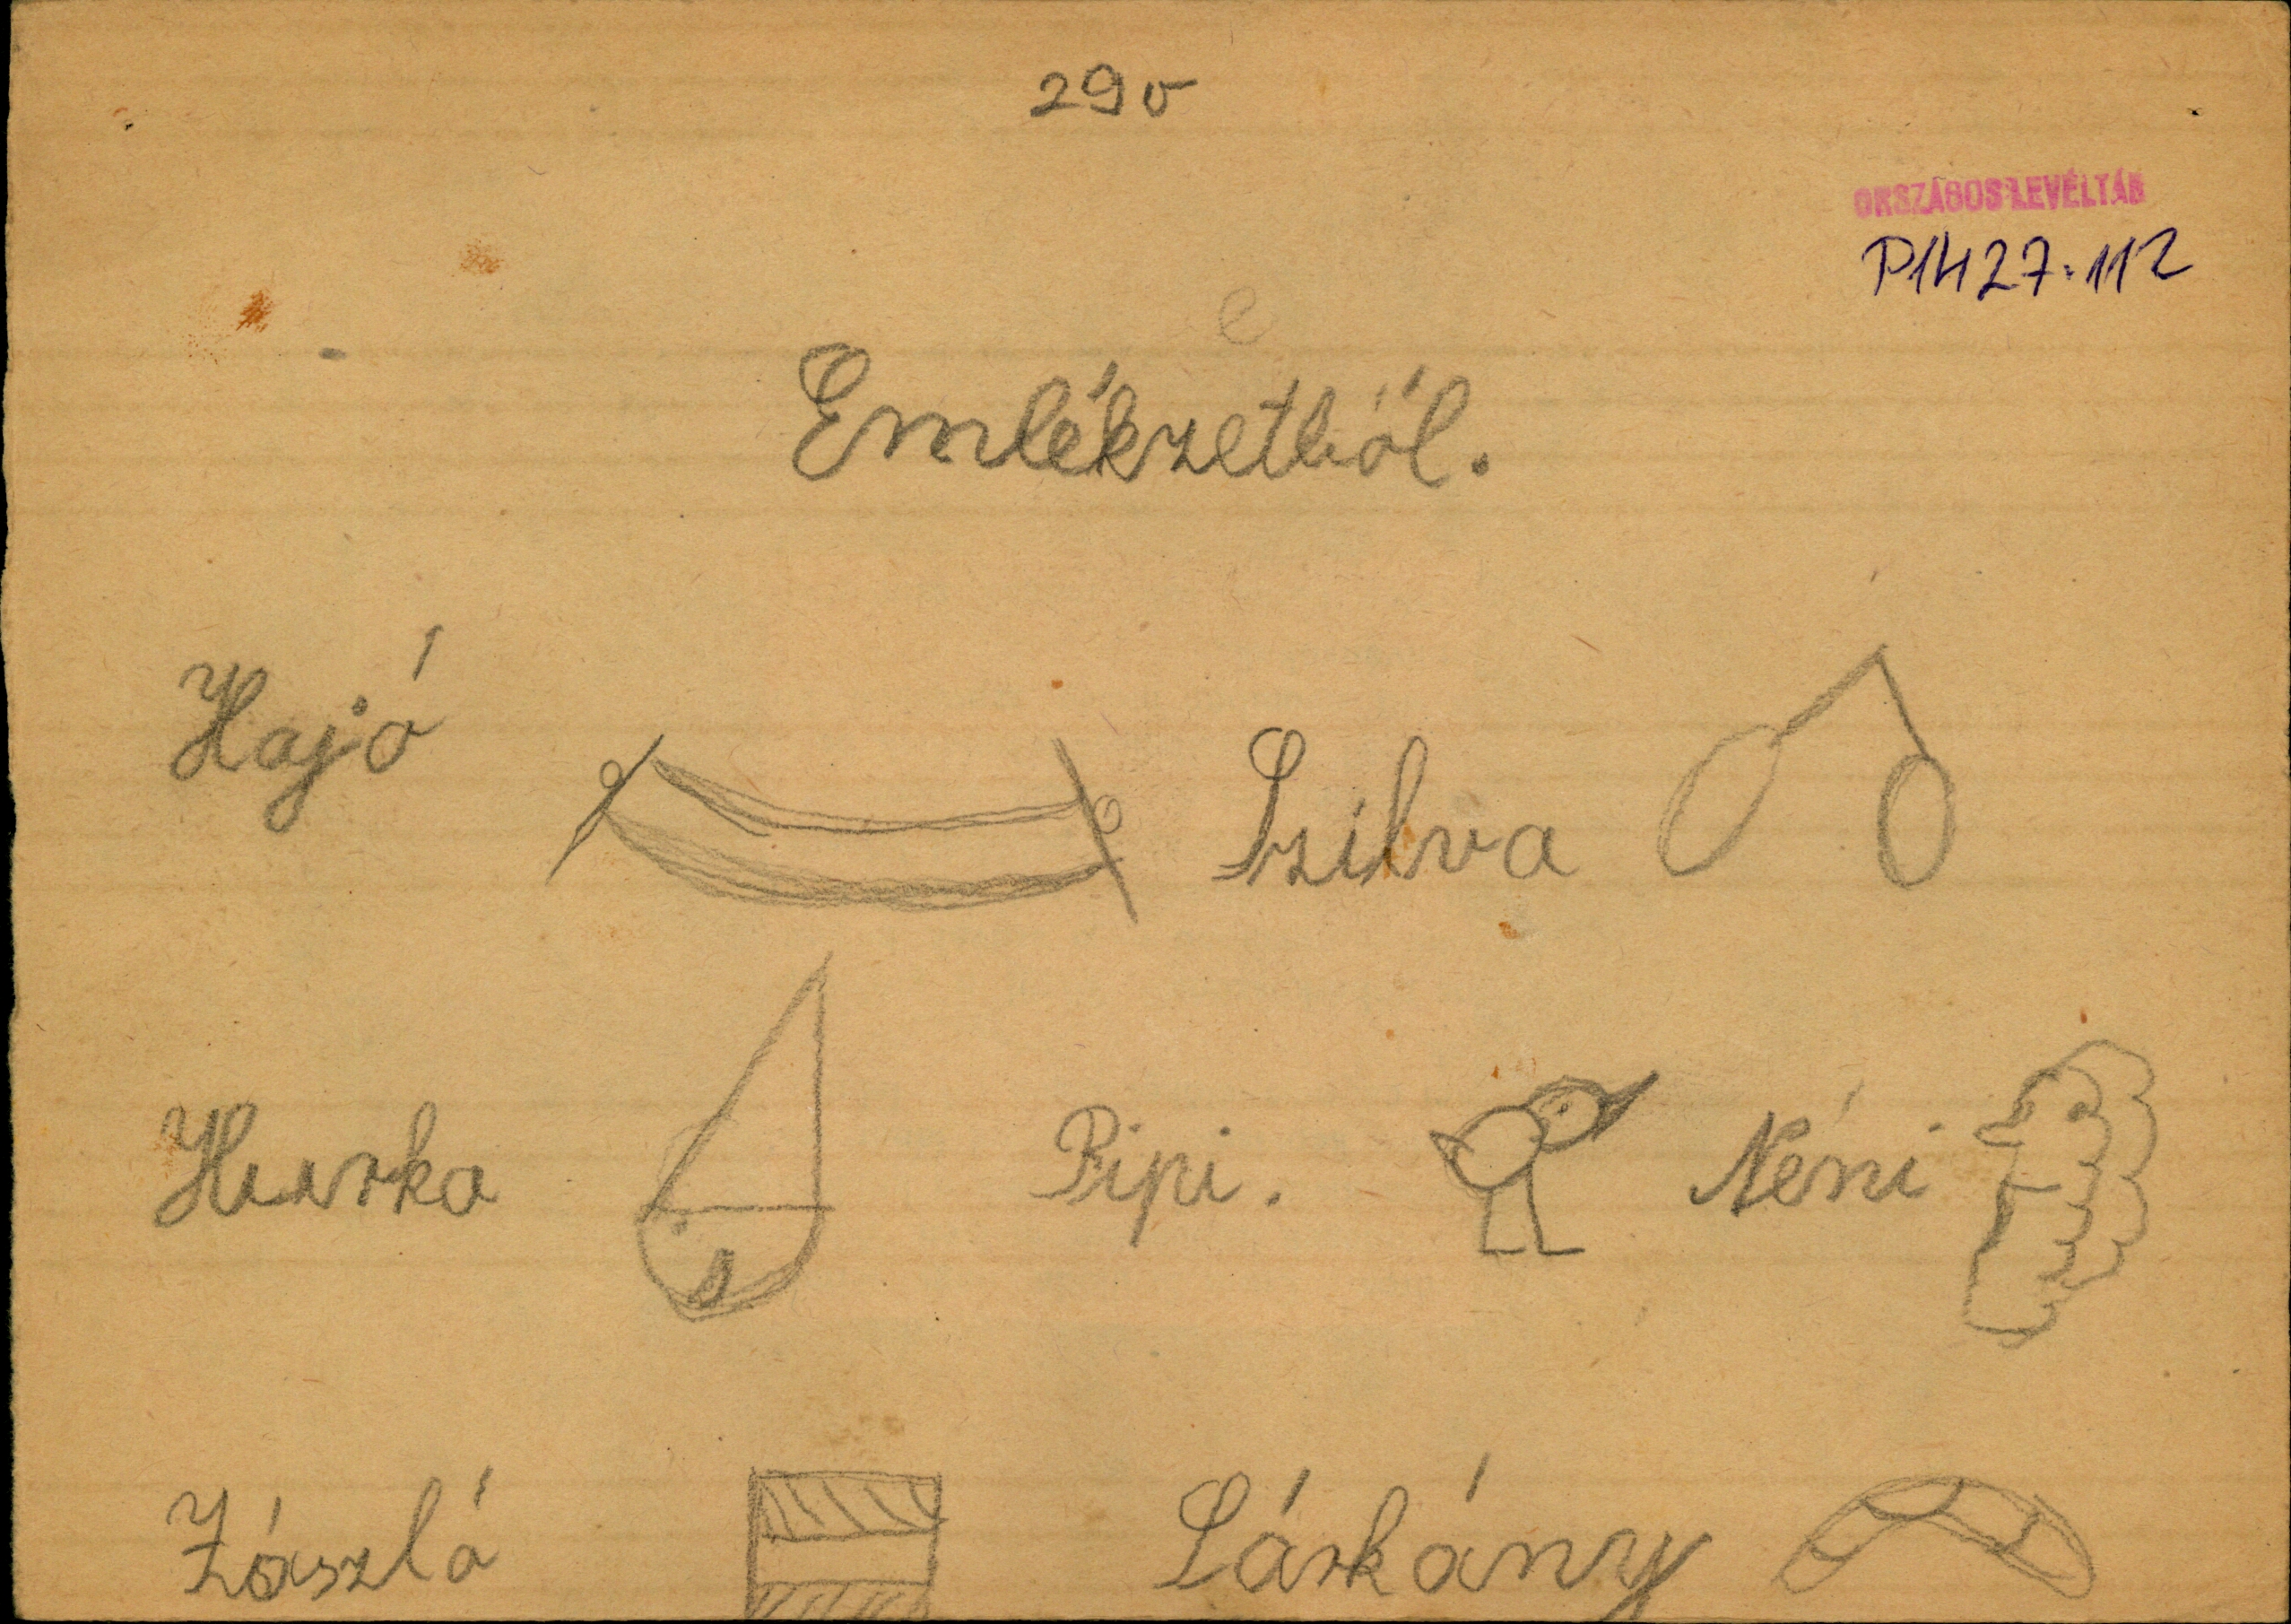 29 v
ORSZÁGOS LEVÉLTÁR
P1427.112
e
Emlékzetből.
Hajó
Szilva
Hurka
Pipi.
Néni
Zászló
Sárkány